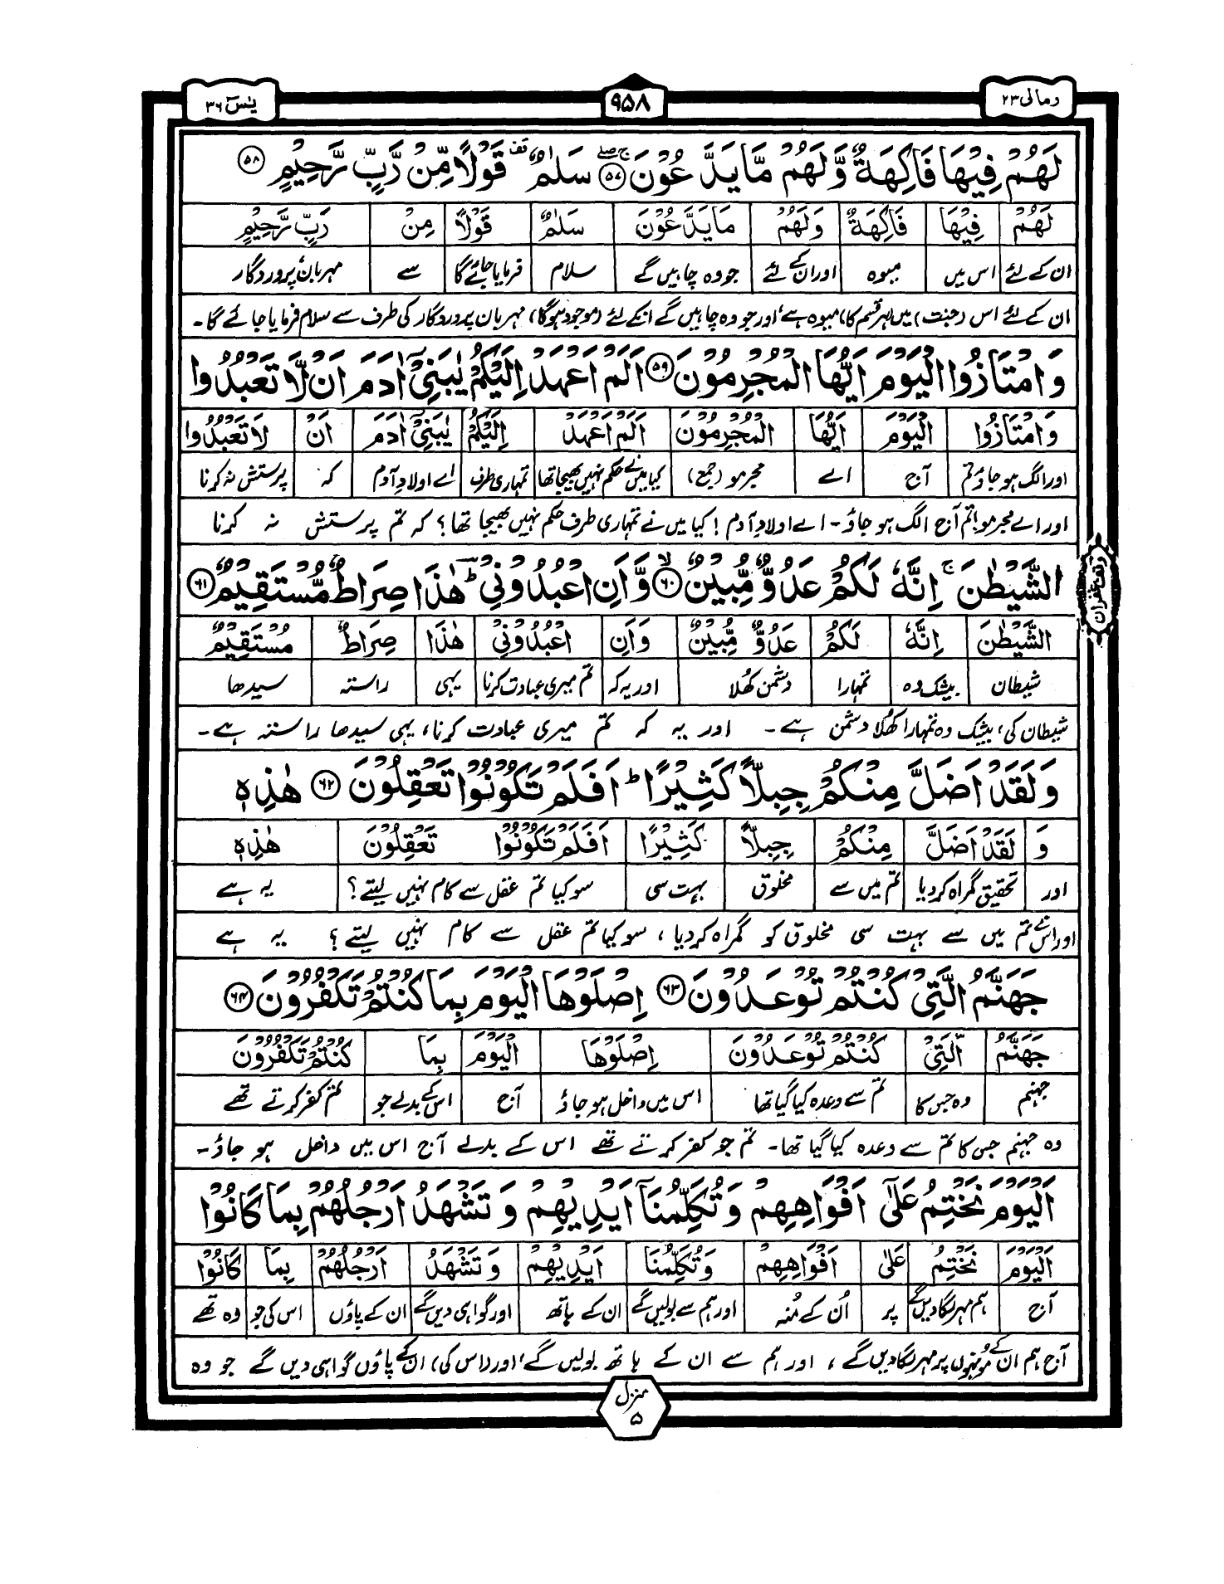 ومالی ۲۳
۹۵۸
یٰسٓ ۳۶
لَهُمْ فِيْهَا فَاكِهَةٌ وَّلَهُمْ مَّا يَدَّعُوْنَ ۵۷ سَلٰمٌ قَوْلًا مِّنْ رَّبٍّ رَّحِيْمٍ ۵۸
لَهُمْ فِيْهَا فَاكِهَةٌ وَلَهُمْ مَا يَدَّعُوْنَ سَلٰمٌ قَوْلًا مِنْ رَبٍّ رَّحِيْمٍ
ان کے لئے اس میں میوہ اور ان کے لئے جو وہ چاہیں گے سلام فرمایا جائے گا سے مہربان پروردگار
ان کے لئے اس (جنت) میں (ہر قسم کا) میوہ ہے، اور جو وہ چاہیں گے انکے لئے (موجود ہوگا)، مہربان پروردگار کی طرف سے سلام فرمایا جائے گا۔
وَامْتَازُوا الْيَوْمَ اَيُّهَا الْمُجْرِمُوْنَ ۵۹ اَلَمْ اَعْهَدْ اِلَيْكُمْ يٰبَنِيْٓ اٰدَمَ اَنْ لَّا تَعْبُدُوا
وَامْتَازُوا الْيَوْمَ اَيُّهَا الْمُجْرِمُوْنَ اَلَمْ اَعْهَدْ اِلَيْكُمْ يٰبَنِيْٓ اٰدَمَ اَنْ لَا تَعْبُدُوا
اور الگ ہو جاؤ تم آج اے مجرمو (جمع) کیا میں نے حکم نہیں بھیجا تھا تمہاری طرف اے اولادِ آدم کہ پرستش نہ کرنا
اور اے مجرمو! تم آج الگ ہو جاؤ۔ اے اولادِ آدم! کیا میں نے تمہاری طرف حکم نہیں بھیجا تھا؟ کہ تم پرستش نہ کرنا
الشَّيْطٰنَ ۚ اِنَّهٗ لَكُمْ عَدُوٌّ مُّبِيْنٌ ۶۰ وَّاَنِ اعْبُدُوْنِيْ ؕ هٰذَا صِرَاطٌ مُّسْتَقِيْمٌ ۶۱
الشَّيْطٰنَ اِنَّهٗ لَكُمْ عَدُوٌّ مُّبِيْنٌ وَاَنِ اعْبُدُوْنِيْ هٰذَا صِرَاطٌ مُسْتَقِيْمٌ
شیطان بیشک وہ تمہارا دشمن کھلا اور یہ کہ تم میری عبادت کرنا یہی راستہ سیدھا
شیطان کی، بیشک وہ تمہارا کھلا دشمن ہے۔ اور یہ کہ تم میری عبادت کرنا، یہی سیدھا راستہ ہے۔
وقف غفران
وَلَقَدْ اَضَلَّ مِنْكُمْ جِبِلًّا كَثِيْرًا ؕ اَفَلَمْ تَكُوْنُوْا تَعْقِلُوْنَ ۶۲ هٰذِهٖ
وَ لَقَدْ اَضَلَّ مِنْكُمْ جِبِلًّا كَثِيْرًا اَفَلَمْ تَكُوْنُوْا تَعْقِلُوْنَ هٰذِهٖ
اور تحقیق گمراہ کردیا تم میں سے مخلوق بہت سی سو کیا تم عقل سے کام نہیں لیتے؟ یہ ہے
اور اس نے تم میں سے بہت سی مخلوق کو گمراہ کردیا، سو کیا تم عقل سے کام نہیں لیتے؟ یہ ہے
جَهَنَّمُ الَّتِيْ كُنْتُمْ تُوْعَدُوْنَ ۶۳ اِصْلَوْهَا الْيَوْمَ بِمَا كُنْتُمْ تَكْفُرُوْنَ ۶۴
جَهَنَّمُ الَّتِيْ كُنْتُمْ تُوْعَدُوْنَ اِصْلَوْهَا الْيَوْمَ بِمَا كُنْتُمْ تَكْفُرُوْنَ
جہنم وہ جس کا تم سے وعدہ کیا گیا تھا اس میں داخل ہو جاؤ آج اس کے بدلے جو تم کفر کرتے تھے
وہ جہنم جس کا تم سے وعدہ کیا گیا تھا۔ تم جو کفر کرتے تھے اس کے بدلے آج اس میں داخل ہو جاؤ۔
اَلْيَوْمَ نَخْتِمُ عَلٰٓى اَفْوَاهِهِمْ وَتُكَلِّمُنَآ اَيْدِيْهِمْ وَتَشْهَدُ اَرْجُلُهُمْ بِمَا كَانُوْا
اَلْيَوْمَ نَخْتِمُ عَلٰى اَفْوَاهِهِمْ وَتُكَلِّمُنَا اَيْدِيْهِمْ وَتَشْهَدُ اَرْجُلُهُمْ بِمَا كَانُوْا
آج ہم مہر لگا دیں گے پر اُن کے مُنہ اور ہم سے بولیں گے ان کے ہاتھ اور گواہی دیں گے ان کے پاؤں اس کی جو وہ تھے
آج ہم ان کے مونہوں پر مہر لگا دیں گے، اور ہم سے ان کے ہاتھ بولیں گے، اور (اس کی) ان کے پاؤں گواہی دیں گے جو وہ
منزل ۵